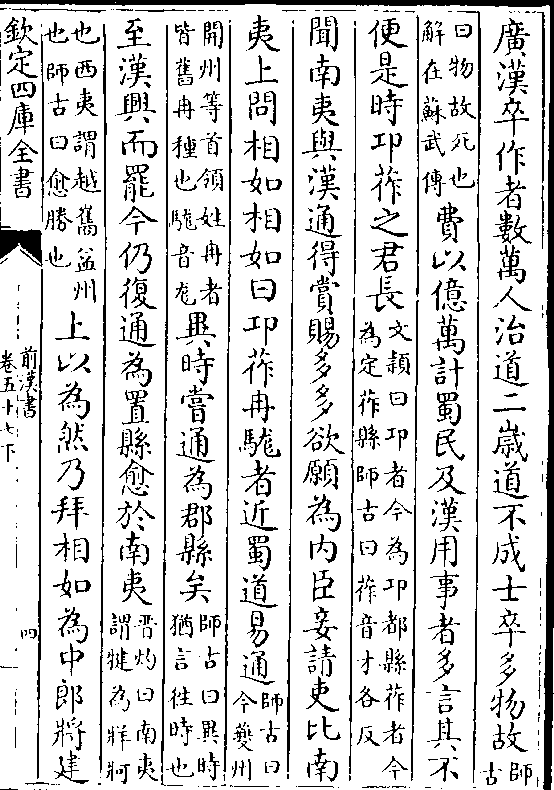 廣漢卒作者數萬人治道二嵗道不成士卒多物故師古
曰物故死也解在蘇武傳費以億萬計蜀民及漢用事者多言其不
便是時卭莋之君長文穎曰卭者今為卭都縣莋者今為定莋縣師古曰莋音才各反
聞南夷與漢通得賞賜多多欲願為内臣妾請吏比南
夷上問相如相如曰卭莋冉駹者近蜀道易通師古曰今夔州
開州等首領姓冉者皆舊冉種也駹音尨異時嘗通為郡縣矣師古曰異時猶言徃時也
至漢興而罷今仍復通為置縣愈於南夷晋灼曰南夷謂犍為牂牁
也西夷謂越嶲益州也師古曰愈勝也上以為然乃拜相如為中郎將建
欽定四庫全書
前漢書
卷五十七下
四